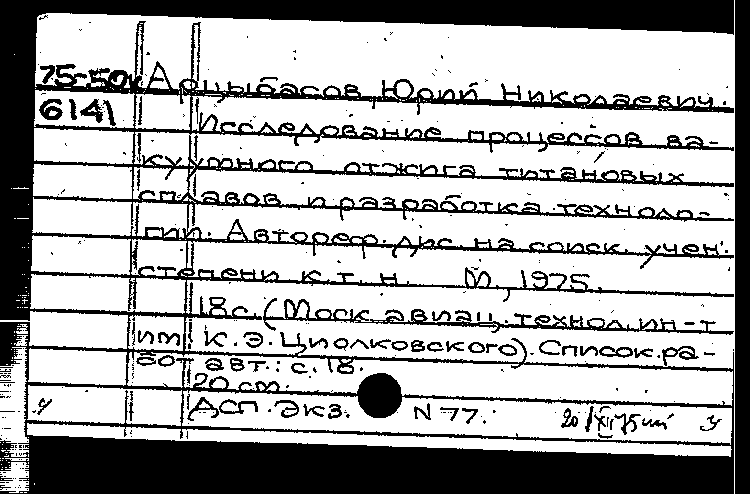 75-50к Арцыбасов, Юрий Николаевич.
6141 Исследование процессов ва-
куумного отжига титановых
сплавов и разработка техноло-
гии. Автореф. дис. на соиск. учен.
степени к.т.н. М., 1975.
18с. (Моск. авиац. технол. ин-т
им. К.Э. Циолковского). Список ра-
бот авт.: с. 18.
20 см.
ДСП. Экз. N 77.